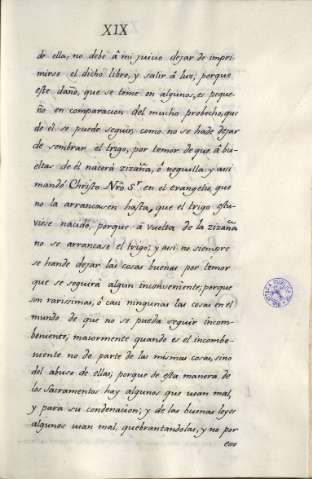 XIX
de ella, no debe â mi juicio dejar de impri-
mirse el dicho libro, y salir â luz; porque
este daño, que se teme en algunos, es peque-
ño en comparacion del mucho probecho, que
de él se puede seguir; como no se hade dejar
de sembrar el trigo, por temor de que â bu-
eltas de él nacerá zizaña, ô neguilla, y asi
mandó Christo Nrô S.r en el evangelio, que
no la arrancasen hasta, que el trigo estu-
viese nacido, porque â vuelta de la zizaña
no se arrancase el trigo; y asi no siempre
se hande dejar las cosas buenas por temor
que se seguirá algun inconveniente; porque
son rarisimas, ô casi ningunas las cosas en el
mundo de que no se pueda seguir incom-
beniente, maiormente quando es el incombe-
niente no de parte de las mismas cosas, sino
del abuso de ellas; porque de esta manera de
los Sacramentos hay algunos que usan mal,
y para su condenacion; y de las buenas leyes
algunos usan mal, quebrantandolas, y no por
eso